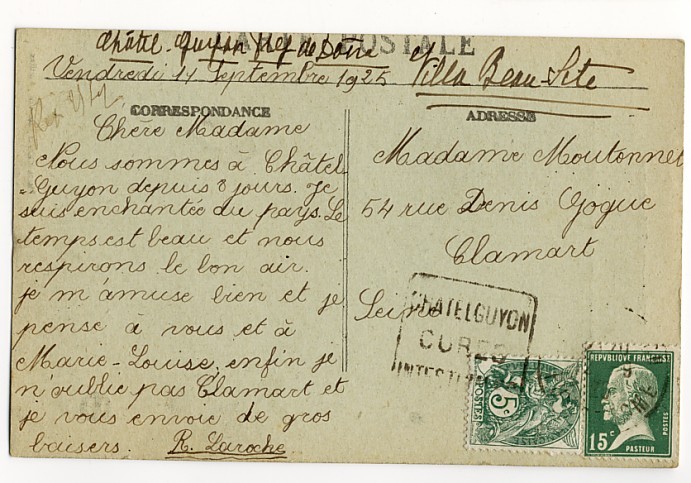 CARTE POSTALE
Châtel-Guyon Puy de Dôme
Vendredi 11 Septembre 1925
Villa Beau-Site
CORRESPONDANCE
Chère Madame
Nous sommes à Châtel
-Guyon depuis 8 jours. Je
suis enchantée du pays. Le
temps est beau et nous
respirons le bon air.
je m'amuse bien et je
pense à vous et à
Marie-Louise, enfin je
n'oublie pas Clamart et
je vous envoie de gros
baisers. R. Laroche
ADRESSE
Madame Moutonnet
54 rue Denis Gogue
Clamart
Seine
CHATELGUYON
CURES
INTESTINALES
5c
POSTES
REPUBLIQUE FRANÇAISE
15c
POSTES
PASTEUR